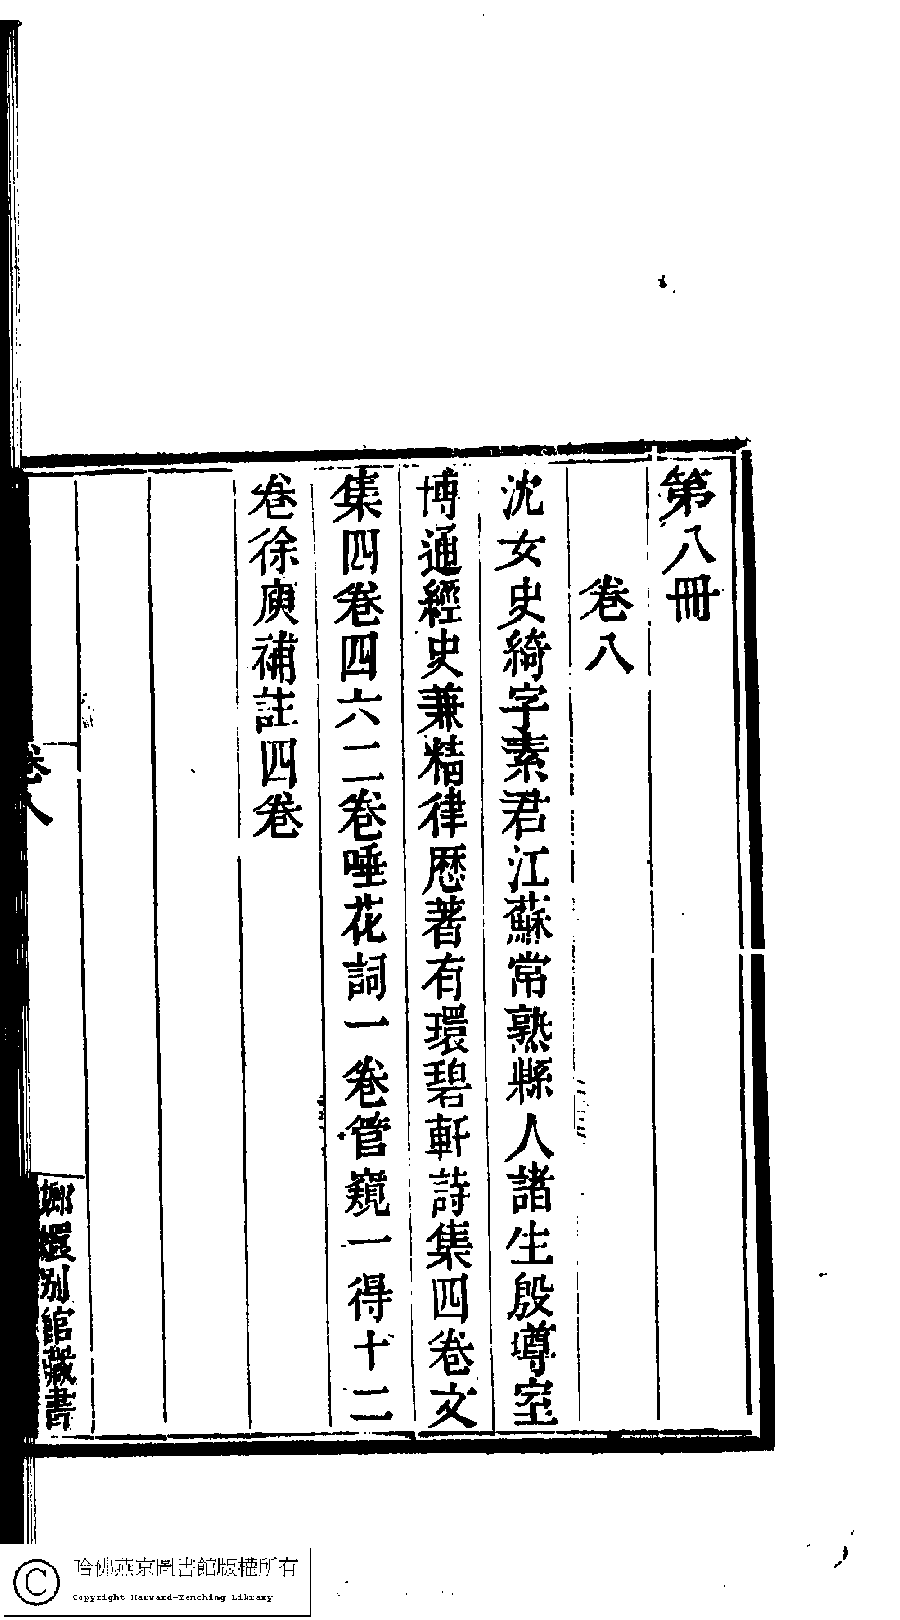 第八冊
卷八
沈女史綺字素君江蘇常熟縣人諸生殷墫室
博通經史兼精律厯著有環碧軒詩集四卷文
集四卷四六二卷唾花詞一卷管窺一得十二
卷徐庾補註四卷
卷八
嫏嬛別館藏書
哈佛燕京圖書館版權所有
Copyright Harvard-Yenching Library